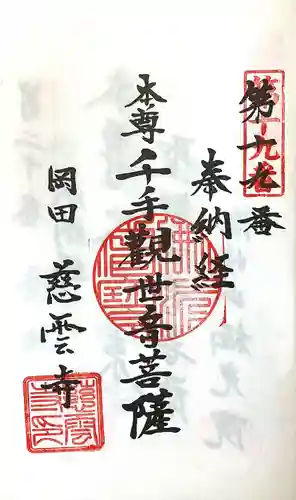 第十九番
奉納経
本尊千手観世音菩薩
岡田
慈雲寺